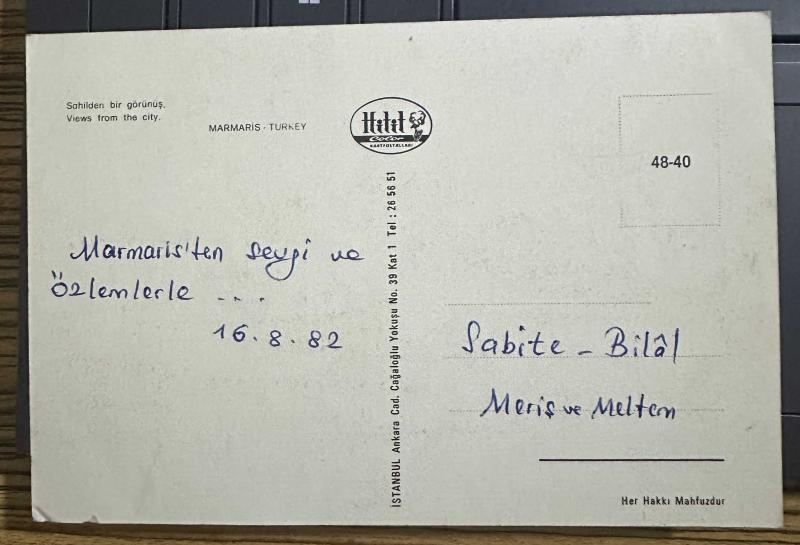 Sahilden bir görünüş.
Views from the city.
MARMARİS - TURKEY
Hitit
Color
KARTPOSTALLARI
48-40
Marmaris'ten sevgi ve
Özlemlerle ...
16.8.82
İSTANBUL Ankara Cad. Cağaloğlu Yokuşu No. 39 Kat 1 Tel : 26 56 51
Sabite - Bilâl
Meriş ve Meltem
Her Hakkı Mahfuzdur